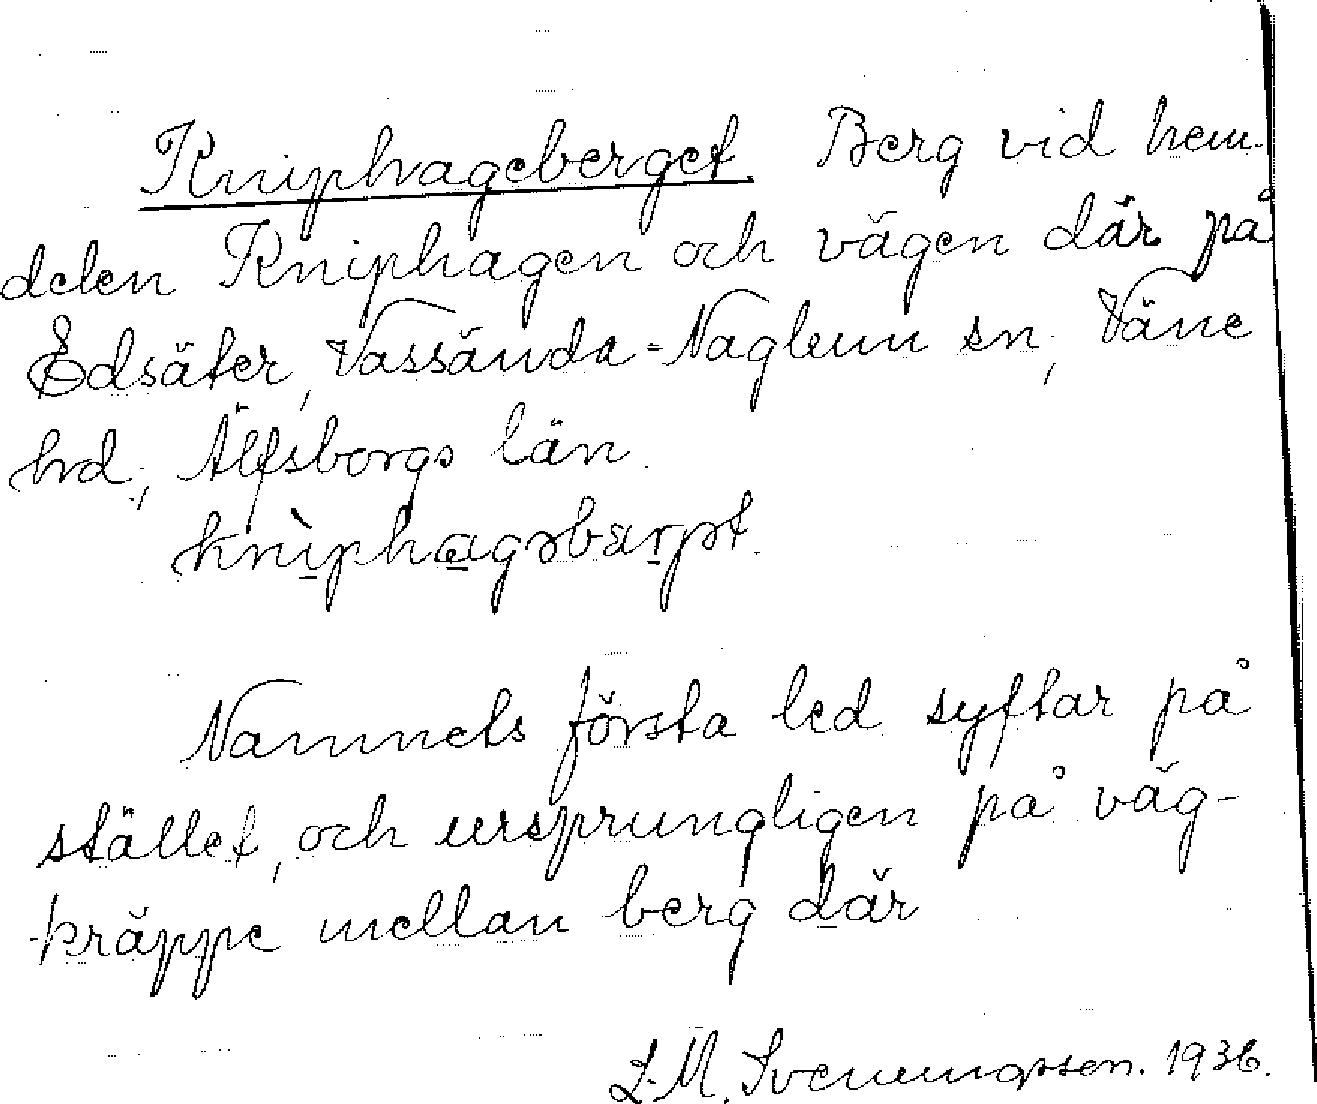 Kniphageberget. Berg vid hem-
delen Kniphagen och vägen där på
Edsäter, Vassända-Naglum sn, Väne
hrd., Älfsborgs län.
Namnets första led syftar på
stället, och ursprungligen på väg-
kräppe mellan berg där
L.M. Svenungsson. 1936.